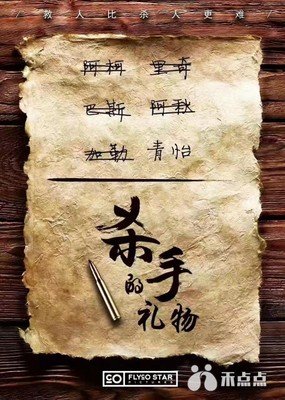 / 救人比杀人更难 /
阿柯 里奇
巴斯 阿秋
加勒 青怡
杀手的礼物
GO FLYSO STAR
PICTURES
禾点点